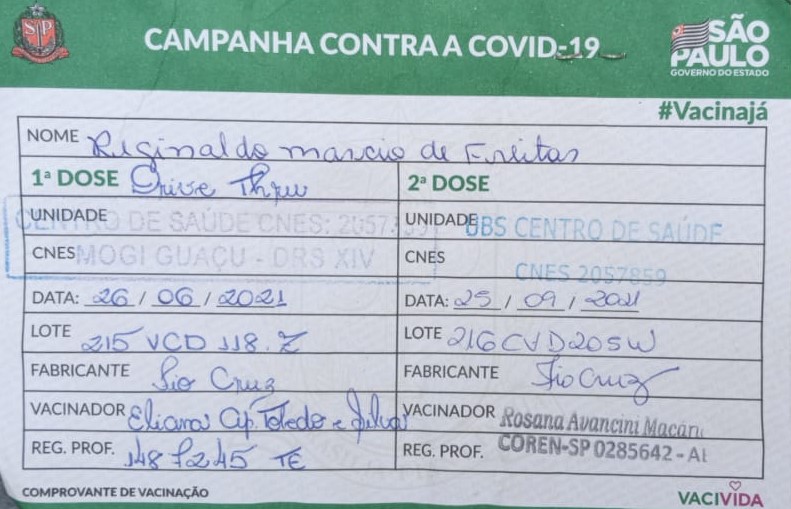 CAMPANHA CONTRA A COVID-19
SÃO PAULO
GOVERNO DO ESTADO
#Vacinajá
NOME Reginaldo marcio de Freitas
1ª DOSE Drive Thru
2ª DOSE
UNIDADE CENTRO DE SAÚDE CNES: 2057859
UNIDADE UBS CENTRO DE SAÚDE
CNES MOGI GUAÇU - DRS XIV
CNES CNES 2057859
DATA: 26 / 06 / 2021
DATA: 25 / 09 / 2021
LOTE 215 VCD 118. Z
LOTE 216CVD205W
FABRICANTE Fio Cruz
FABRICANTE FioCruz
VACINADOR Eliana Ap. Toledo e Silva
VACINADOR Rosana Avancini
REG. PROF. 1487245 TE
REG. PROF. COREN-SP 0285642 -
COMPROVANTE DE VACINAÇÃO
VACIVIDA